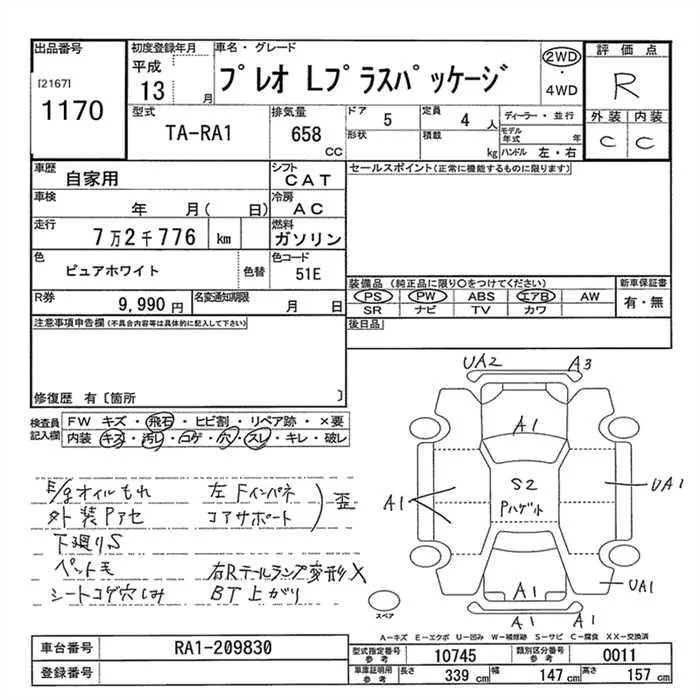 出品番号
[2167]
1170
初度登録年月
平成
13 月
車名・グレード
プレオ Lプラスパッケージ
2WD
・
4WD
評価点
R
外装 内装
C C
型式
TA-RA1
排気量
658
CC
ドア
5
形状
定員
4 人
積載
kg
ディーラー・並行
モデル年式 年
ハンドル 左・右
車歴
自家用
シフト
CAT
セールスポイント(正常に機能するものに限ります)
車検
年 月( 日)
冷房
AC
走行
7万2千776 km
燃料
ガソリン
色
ピュアホワイト
色替
色コード
51E
装備品(純正品に限り○をつけてください)
新車保証書
PS PW ABS エアB AW
SR ナビ TV カワ
有・無
R券
9,990円
名変通知期限
月 日
後日品
注意事項申告欄(不具合内容等は具体的に記入して下さい)
修復歴 有〔箇所 〕
検査員記入欄
FW キズ・飛石・ヒビ割・リペア跡・×要
内装・キズ・汚レ・コゲ・穴・スレ・キレ・破レ
UA2 A3
A1
S2
Pハゲ
A1
UA1
UA1
A1
A1 A1
スペア
E/gオイルもれ 左Fインパネ
外装Pアセ コアサポート
歪
下廻りS
ペット毛 右Rテールランプ変形X
シートコゲ穴しみ BT上がり
A-キズ E-エクボ U-凹み W-補修跡 S-サビ C-腐食 XX-交換済
車台番号
RA1-209830
登録番号
型式指定番号
参考
10745
類別区分番号
参考
0011
車庫証明用
参考
長さ 339 cm 幅 147 cm 高さ 157 cm